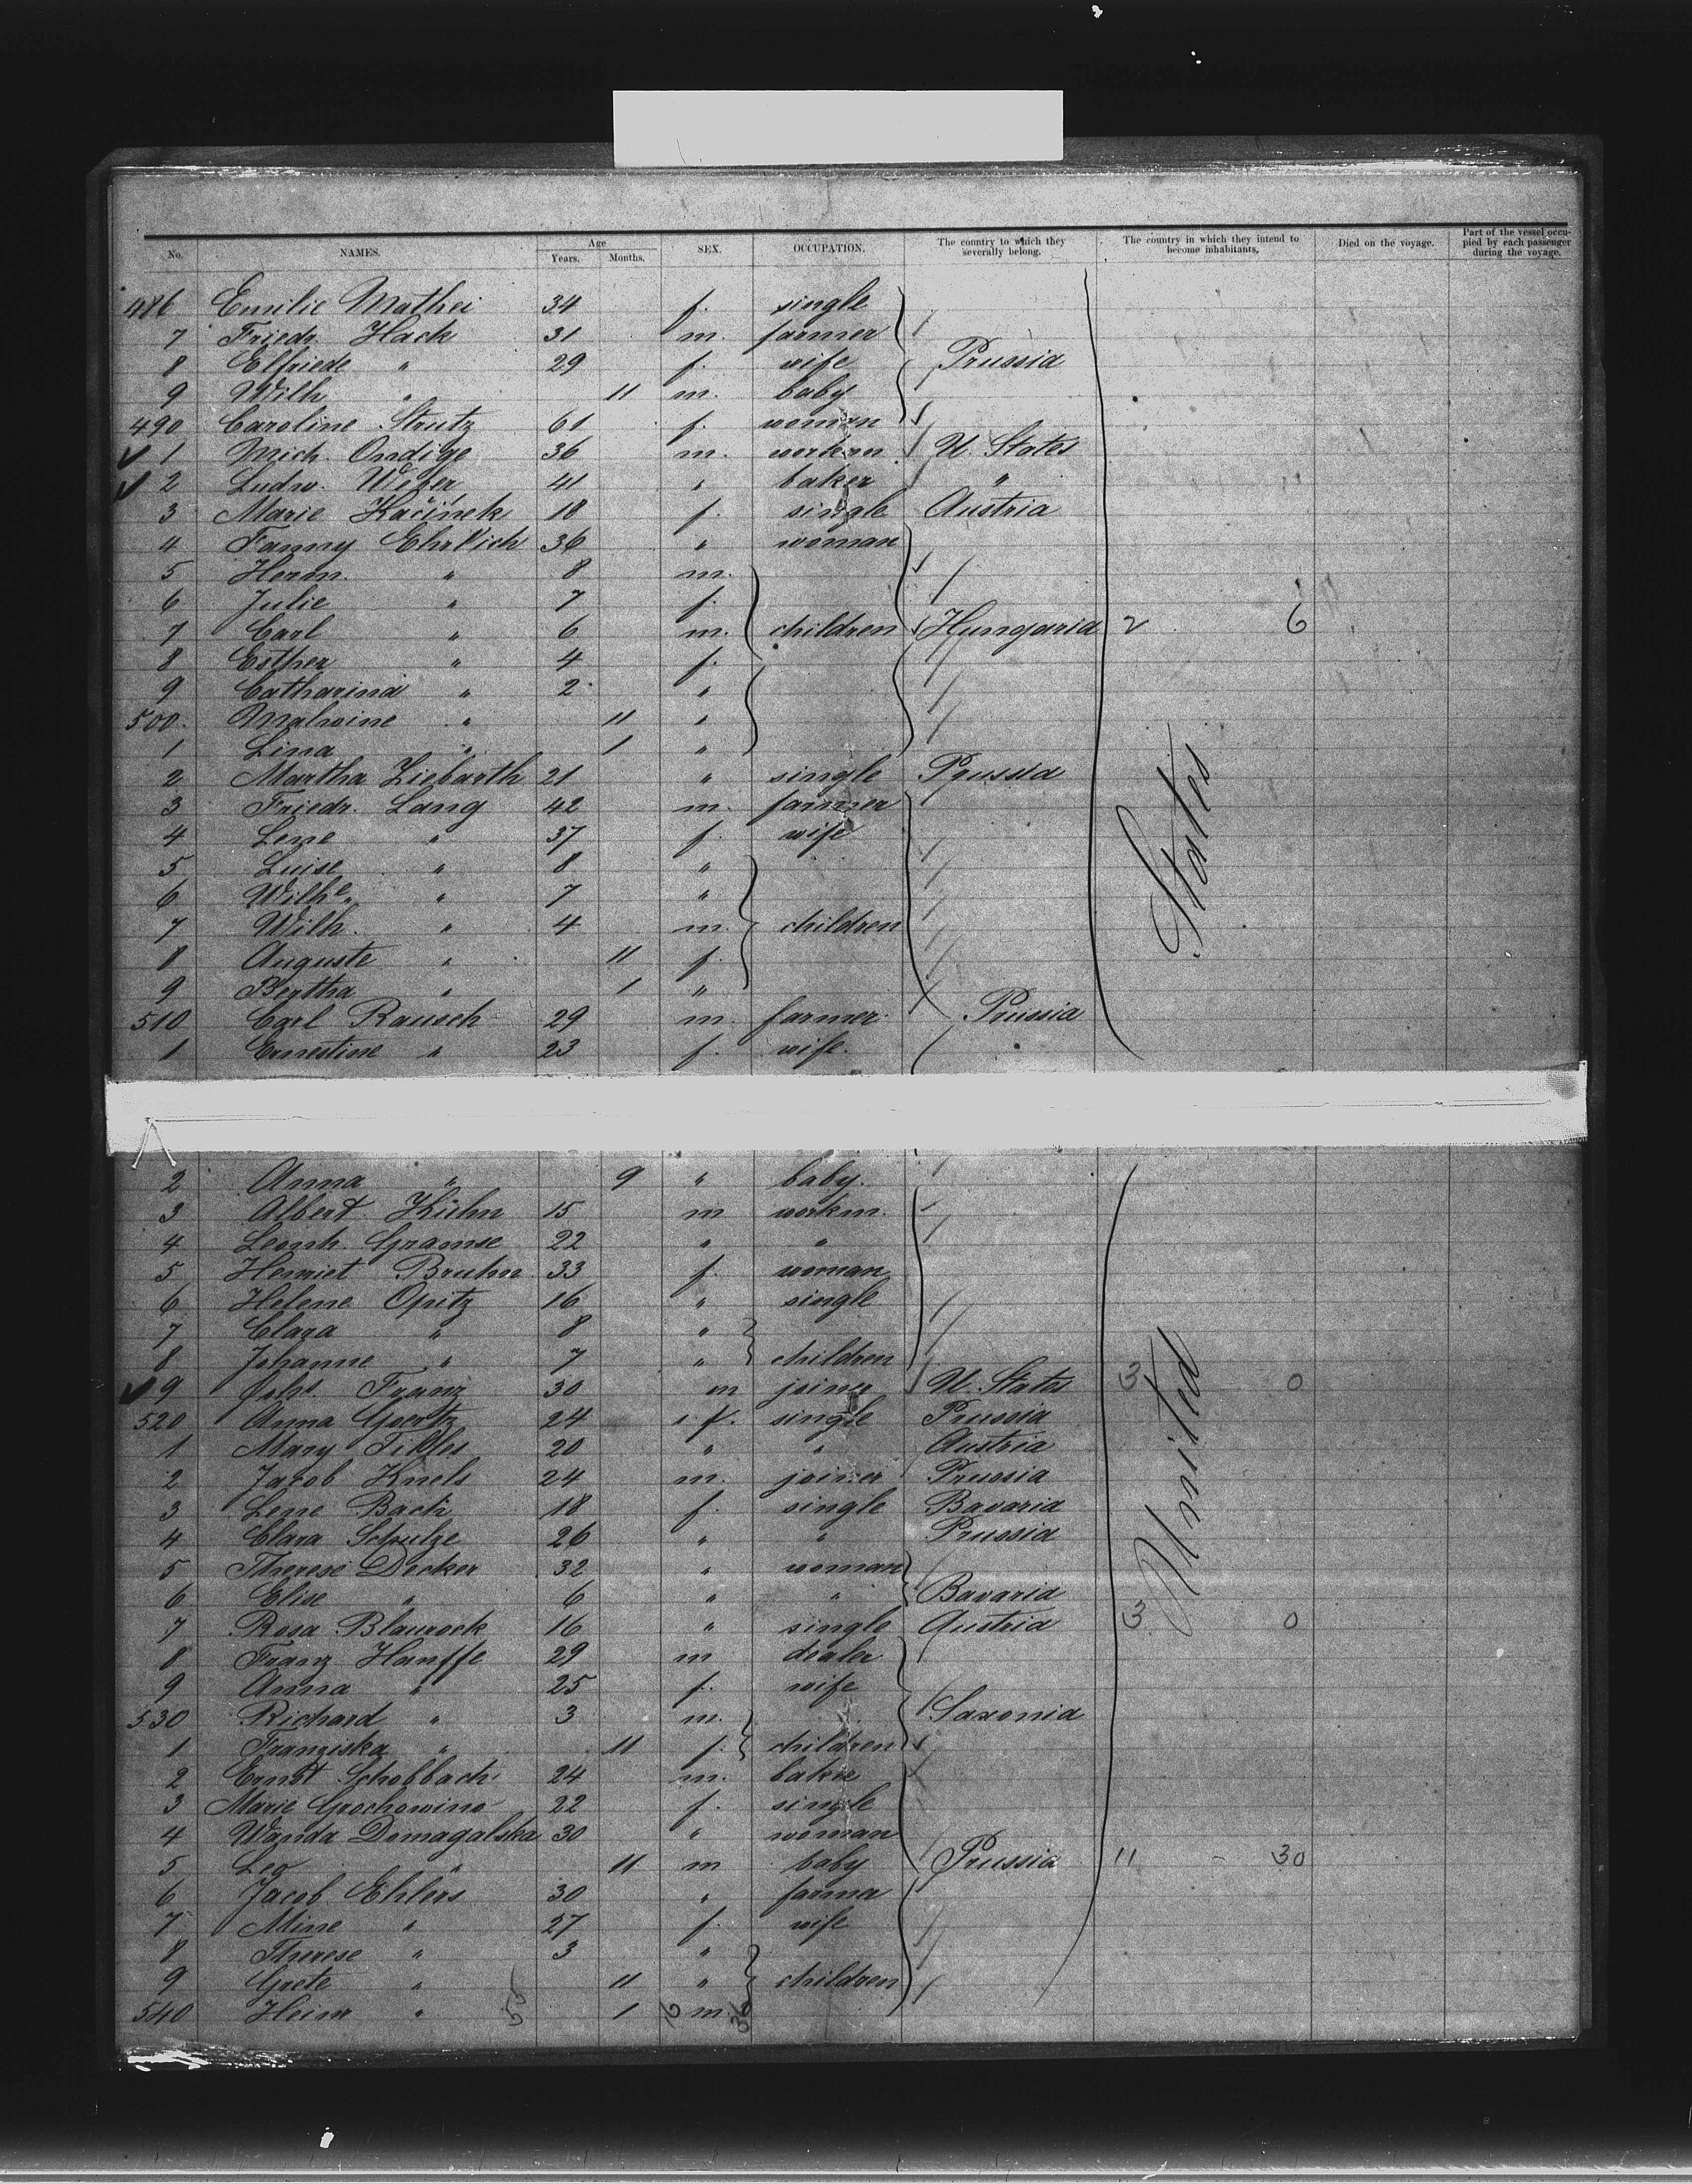 No. NAMES. Age Years. Months. SEX. OCCUPATION. The country to which they severally belong. The country in which they intend to become inhabitants. Died on the voyage. Part of the vessel occupied by each passenger during the voyage.
486 Emilie Mathei 34 f. single
7 Friedr. Hack 31 m. farmer
8 Elfriede " 29 f. wife Prussia
9 Wilh. " 11 m. baby
490 Caroline Strutz 61 f. woman
1 Mich. Ondige 36 m. workm U. States
2 Ludw. Weber 41 " baker "
3 Marie Kačinek 18 f. single Austria
4 Fanny Ehrlich 36 " woman
5 Herm. " 8 m.
6 Julie " 7 f.
7 Carl " 6 m. children Hungaria 2 6
8 Esther " 4 f.
9 Catharina " 2 "
500. Malwine " 11 "
1 Lina " 1 "
2 Martha Ziebarth 21 " single Prussia
3 Friedr. Lang 42 m. farmer
4 Lene " 37 f. wife
5 Luise " 8 "
6 Wilhe. " 7 "
7 Wilh. " 4 m. children
8 Auguste " 11 f.
9 Bertha " 1 "
510 Carl Rausch 29 m. farmer Prussia
1 Ernestine " 23 f. wife.
States
2 Anna " 9 " baby.
3 Albert Kühn 15 m workm.
4 Leonh. Gramse 22 " "
5 Henriet Bruhn 33 f. woman
6 Helene Opitz 16 " single
7 Clara " 8 "
8 Johanne " 7 " children
9 Johs Franz 30 m joiner U. States 3 0
520 Anna Goertz 24 f. single Prussia
1 Mary 20 " " Austria
2 Jacob Knels 24 m. joiner Prussia
3 Lene Bach 18 f. single Bavaria
4 Clara Schulze 26 " " Prussia
5 Therese Decker 32 " woman
6 Elise " 6 " " Bavaria
7 Rosa Blaurock 16 " single Austria 3 0
8 Franz Hanffe 29 m dealer
9 Anna " 25 f. wife
530 Richard " 3 m. Saxonia
1 Franziska " 11 f. children
2 Ernst Schobbach 24 m. baker
3 Marie Grochowina 22 f. single
4 Wanda Domagalska 30 " woman
5 Leo " 11 m baby Prussia 11 - 30
6 Jacob Ehlers 30 " farmer
7 Mine " 27 f. wife
8 Therese " 3 "
9 Grete " 11 " children
540 Heinr " 55 1 m.
United